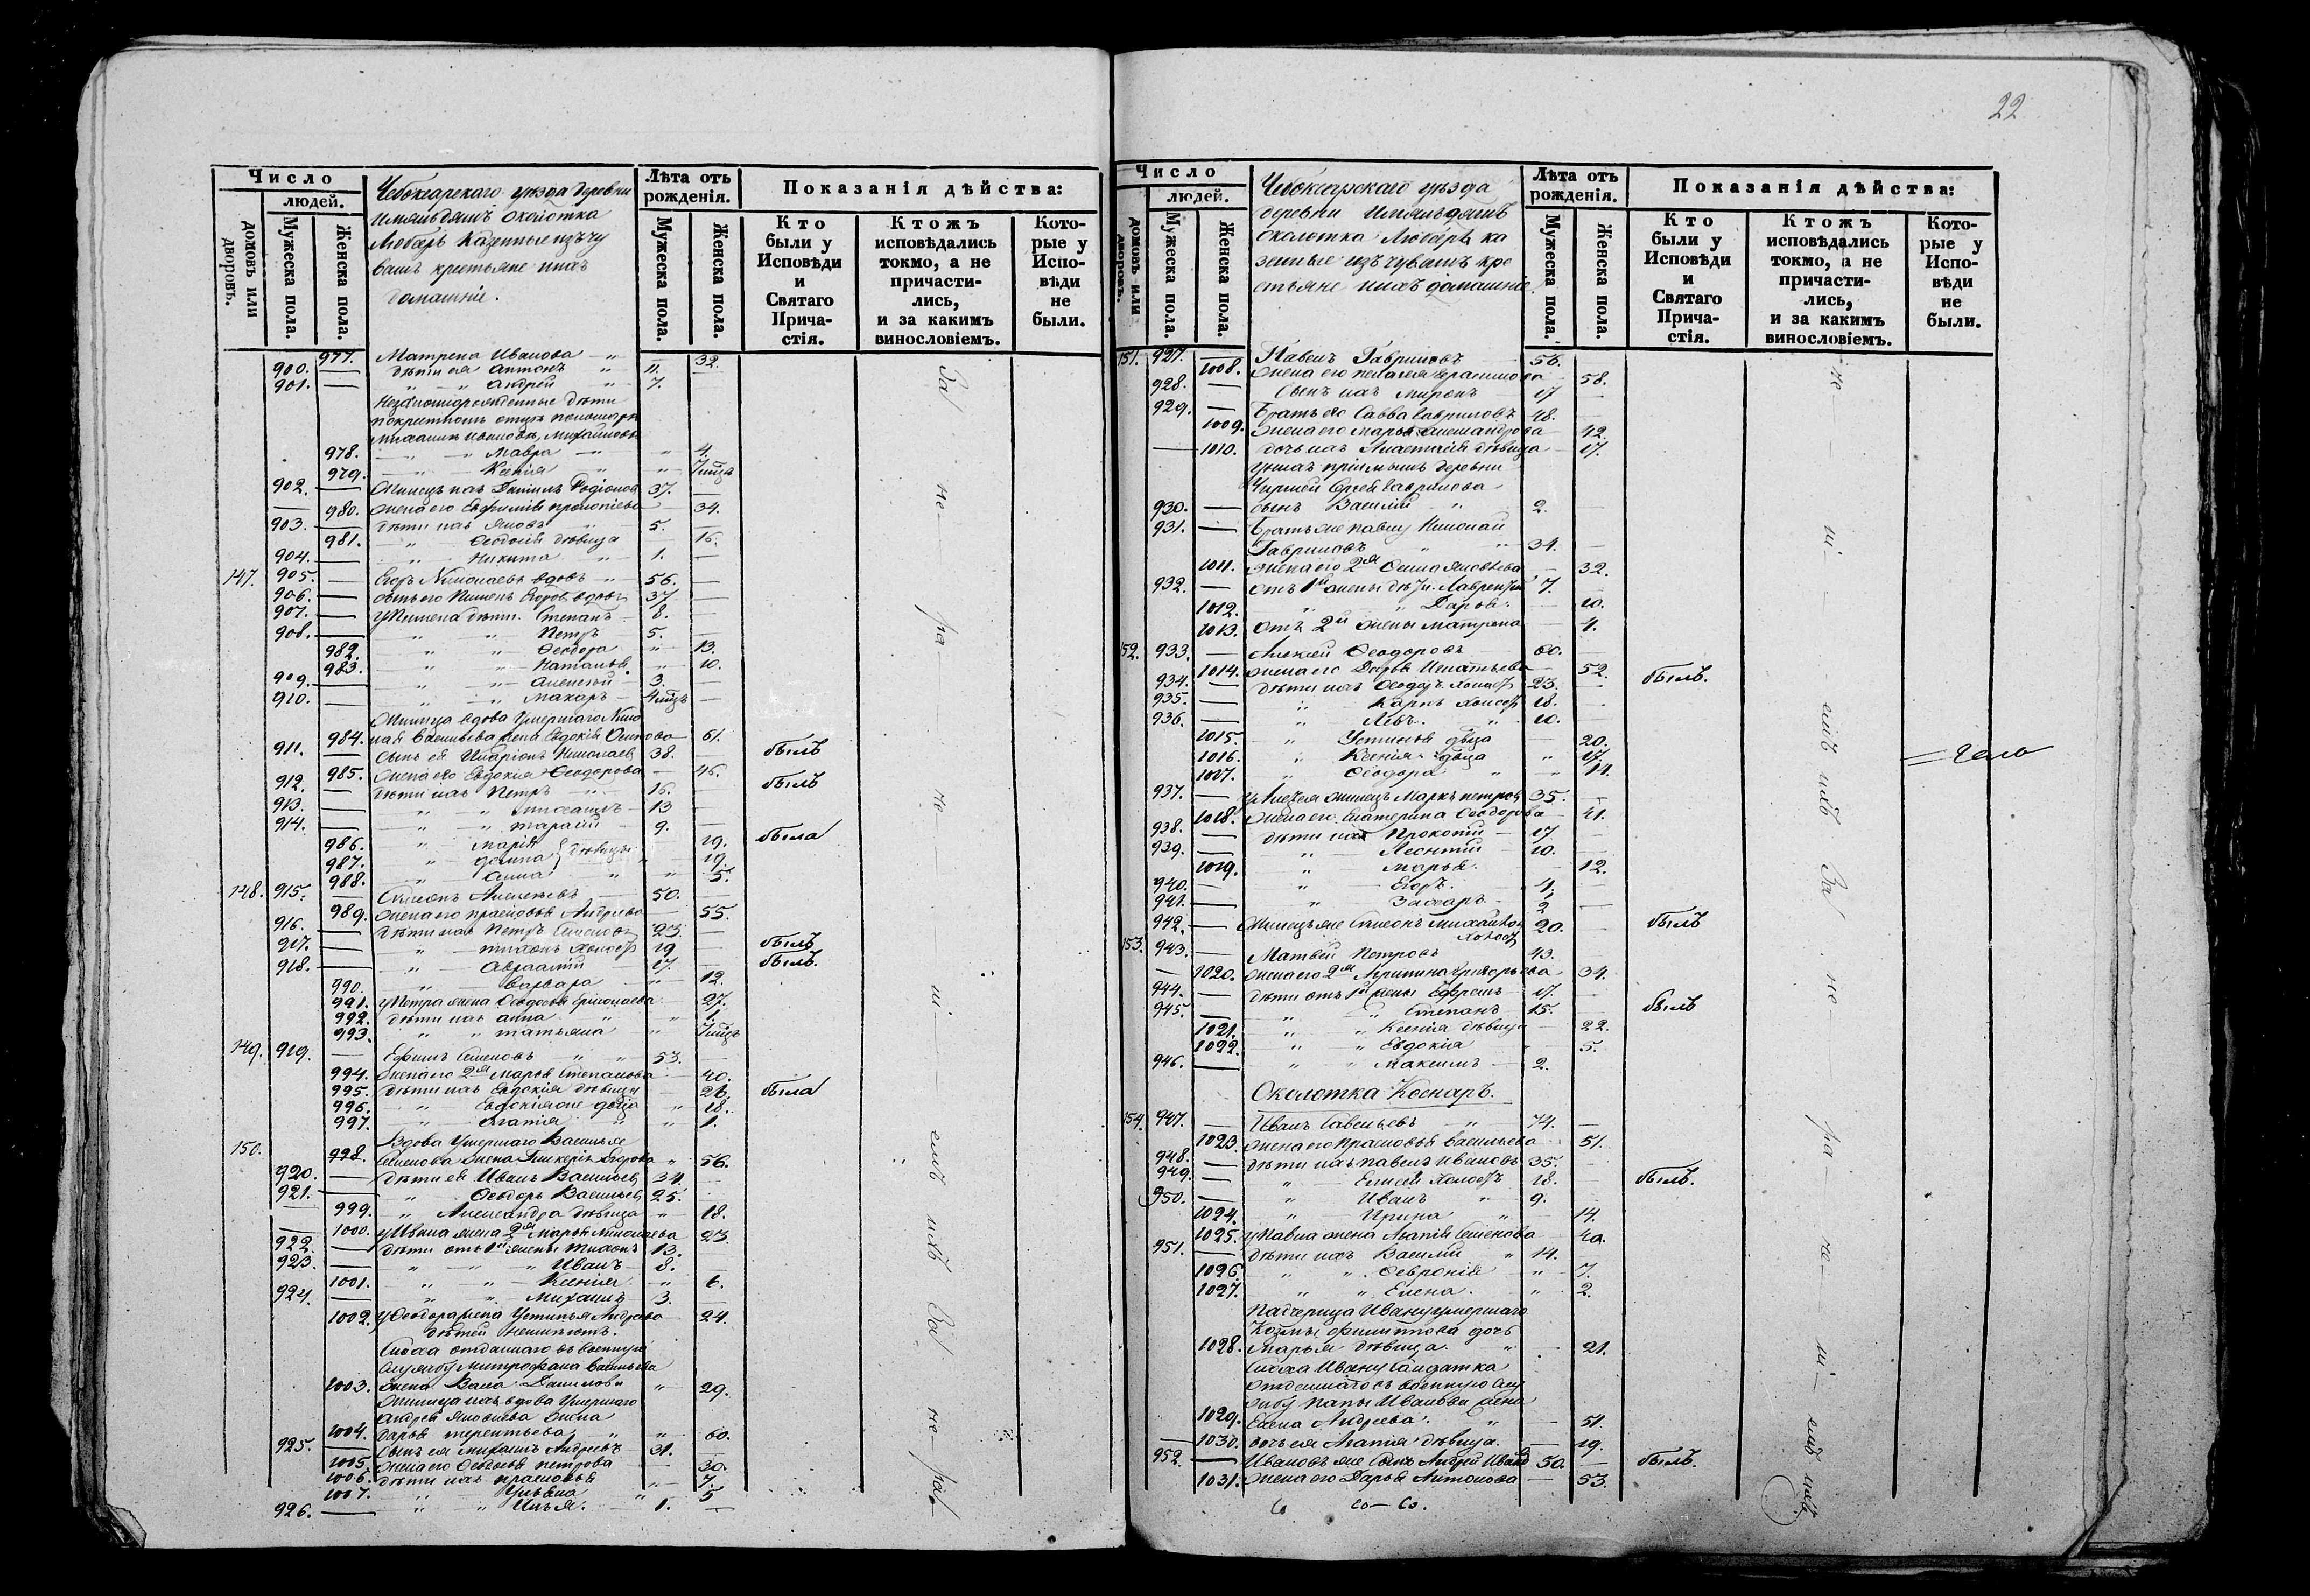 22
Число
людей.
домовъ или дворовъ.
Мужеска пола.
Женска пола.
Чебоксарскаго уѣзда деревни
околотка
казенные изъ чу
вашъ крестьяне и ихъ
домашніе.
Лѣта отъ рожденія.
Мужеска пола.
Женска пола.
Показанія дѣйства:
Кто были у Исповѣди и Святаго Прича-стія.
Ктожъ исповѣдались токмо, а не причасти-лись, и за какимъ винословіемъ.
Кото-рые у Испо-вѣди не были.
977. Матрена Иванова — 32.
900. дѣти ея Антонъ 11.
901. Андрей 7.
незаконнорожденные дѣти
978. Мавра 4.
979. Ксенія
902. Жилецъ ихъ Даніилъ Родіоновъ 37.
980. жена его Евфимія 34.
903. дѣти ихъ Яковъ 5.
981. Ѳеодосія дѣвица 16.
904. Никита 1.
147. 905. Егоръ Николаевъ вдовъ 56.
906. сынъ его Пименъ Егоровъ вдовъ 37
907. у Пимена дѣти Степанъ 8.
908. Петръ 5.
982. Ѳеодора 13.
983. Наталья 10.
909. Алексѣй 3.
910. Макаръ
Жилица вдова умершаго Нико
984. лая Васильева жена Евдокія Осипова 61.
911. Сынъ ея Иларіонъ Николаевъ 38. былъ
985. жена его Евдокія Ѳеодорова 46.
912. дѣти ихъ Петръ 16. былъ
913. 13
914. Тарасій 9.
986. Марія 19. была
987. Домна дѣвицы 19.
988. Анна 5.
148. 915. Симеонъ Алексѣевъ 50.
989. жена его Прасковья Андреева 55.
916. дѣти ихъ Петръ Семеновъ 23.
917. Тихонъ холостъ 19 былъ
918. Авраамій 17. былъ.
990. Варвара 12.
991. у Петра жена Ѳеодосія 27.
992. дѣти ихъ Анна 1.
993. Татьяна
149. 919. Ефимъ Семеновъ 53.
994. жена его 2я Марья Степанова 40.
995. дѣти ихъ Евдокія дѣвица 26. была
996. Евдокія же дѣвца 18.
997. Агапія 1.
150. Вдова умершаго Василья
998. Семенова жена Гликерія Егорова 56.
920. дѣти ея Иванъ Васильевъ 34.
921. Ѳеодоръ Васильевъ 25.
999. Александра дѣвица 18.
1000. у Ивана жена 2я Марья Николаева 23.
922. дѣти отъ 1й жены Тихонъ 13.
923. Иванъ 8.
1001. Ксенія 6.
924. Михаилъ 3.
1002. у Ѳеодора жена Устинья Андреева 24.
дѣтей неимѣютъ.
Сноха отданнаго въ военную
службу Митрофана Васильева
1003. жена Васса Данилова 29.
Жилица ихъ вдова умершаго
Андрея Яковлева жена
1004. Дарья Терентьева 60.
925. Сынъ ея Михаилъ Андреевъ 31.
1005. жена его Ѳедосья Петрова 30.
1006. дѣти ихъ Прасковья 7.
1007. Ульяна 5
926. Илья. 1.
За не-ра-че-ні-емъ ихъ За не-ра-
Число
людей.
домовъ или дворовъ.
Мужеска пола.
Женска пола.
Чебоксарскаго уѣзда
деревни
околотка ка
зенные изъ чувашъ кре
стьяне и ихъ домашніе.
Лѣта отъ рожденія.
Мужеска пола.
Женска пола.
Показанія дѣйства:
Кто были у Исповѣди и Святаго Прича-стія.
Ктожъ исповѣдались токмо, а не причасти-лись, и за какимъ винословіемъ.
Кото-рые у Испо-вѣди не были.
151. 927. Павелъ Гавриловъ 56.
1008. Жена его Пелагея Герасимова 58.
928. Сынъ ихъ Миронъ 17
929. Братъ его Савва Гавриловъ 48.
1009. Жена его Марья Александрова 42.
1010. дочь ихъ Анастасія дѣвица 17.
у нихъ пріемышъ деревни
Сергея Гаврилова
930. сынъ Василій 2.
931. Братъ же Павлу Николай
Гавриловъ 34.
1011. жена его 2я Яковлева 32.
932. отъ 1й жены дѣти Лаврентій 7.
1012. Дарья 10.
1013. отъ 2й жены Матрена 4.
152. 933. Алексей Ѳеодоровъ 60.
1014. жена его Дарья Игнатьева 52.
934. дѣти ихъ Ѳеодоръ холостъ 23. былъ.
935. Карпъ холостъ 18.
936. Левъ. 10.
1015. Устинья дѣвца 20.
1016. Ксенія дѣвца 17.
1017. Ѳеодора 14.
937. у Алексея жилецъ Маркъ Петровъ 35.
1018. жена его Екатерина Ѳеодорова 41.
938. дѣти ихъ Прокопій 17
939. Леонтій 10.
1019. Марья 12.
940. Егоръ. 4.
941. Захаръ 2
942. Жилецъ же Симеонъ Михайловъ холостъ 20. былъ
153. 943. Матвей Петровъ 43.
1020. жена его 2я Агрипина Григорьева 34.
944. дѣти отъ 1й жены Ефремъ 17.
945. Степанъ 15. былъ
1021. Ксенія дѣвица 22.
1022. Евдокія 5.
946. Максимъ 2.
Околотка Коснаръ.
154. 947. Иванъ Савельевъ 74.
1023. жена его Прасковья Васильева 51.
948. дѣти ихъ Павелъ Ивановъ 35.
949. Елисей холостъ 18. былъ.
950. Иванъ 9.
1024. Ирина 14.
1025. у Павла жена Агапія Семенова 40.
951. дѣти ихъ Василій 14.
1026. Ѳевронія 7.
1027. Елена. 2.
Падчерица Ивану умершаго
Козмы Филиппова дочь
1028. Марья дѣвица. 21.
Сноха Ивану солдатка
отданнаго въ военную слу
жбу Ивановa жена
1029. Елена Андреева. 51.
1030. дочь ея Агапія дѣвица. 19.
952. Ивановъ же сынъ Андрей Ивановъ 50. былъ.
1031. жена его Дарья Антонова 53.
не-ра-че-ні-емъ ихъ За не-ра-че-ні-емъ ихъ